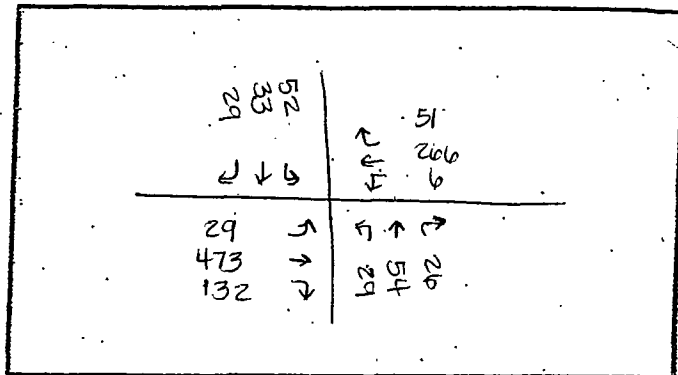 29 33 52
51
266
6
29
473
132
29 54 26